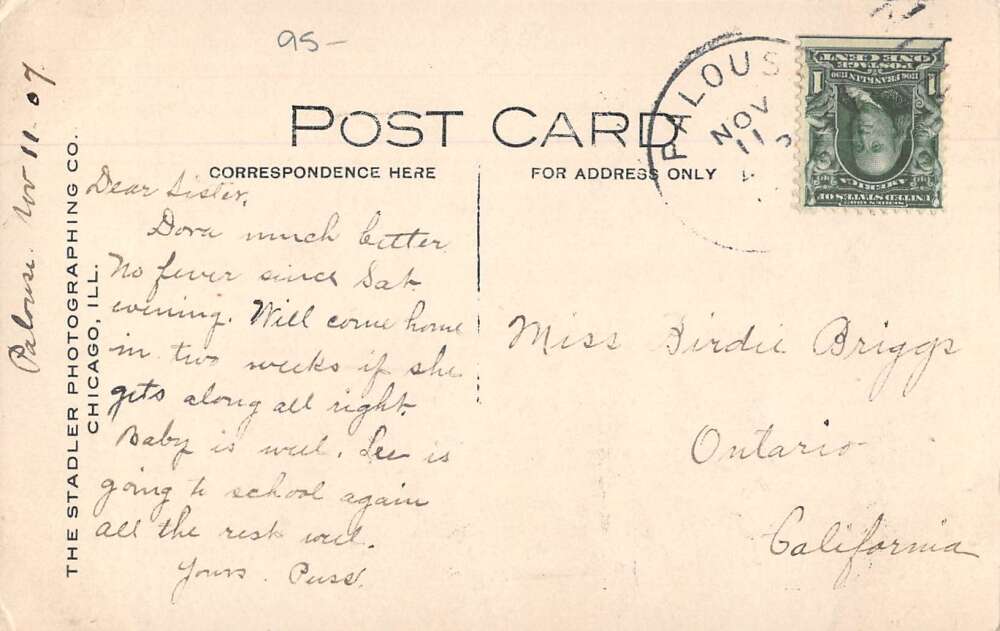 95-
POST CARD
CORRESPONDENCE HERE
FOR ADDRESS ONLY
THE STADLER PHOTOGRAPHING CO.
CHICAGO, ILL.
Palouse Nov 11-07
Dear Sister,
Dora much better
No fever since Sat
evening. Will come home
in two weeks if she
gets along all right.
Baby is well. Lee is
going to school again
all the rest well.
Yours Puss.
PALOUS
NOV
11
SERIES 1902
UNITED STATES OF
AMERICA
1706 FRANKLIN 1790
POSTAGE
1 ONE CENT 1
Miss Birdie Briggs
Ontario
California